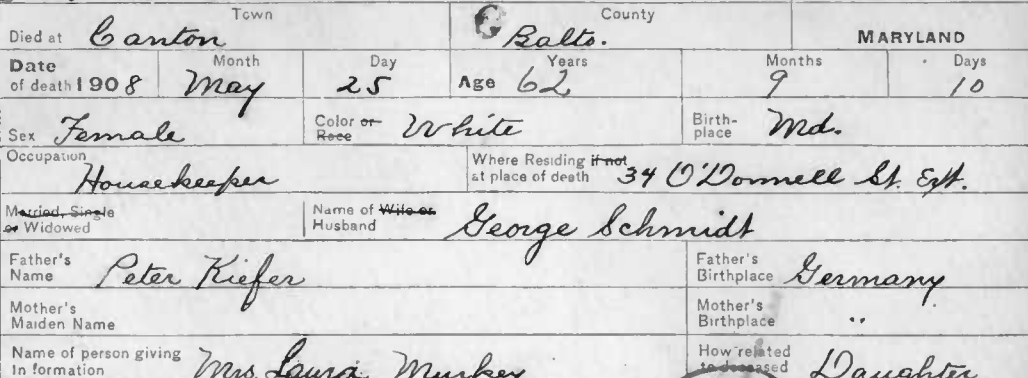 Died at Town Canton County Balto. MARYLAND
Date of death 1908 Month May Day 25 Age Years 62 Months 9 Days 10
Sex Female Color or Race White Birth-place Md.
Occupation Housekeeper Where Residing if not at place of death 34 O'Donnell St. Ext.
Married, Single or Widowed Name of Wife or Husband George Schmidt
Father's Name Peter Kiefer Father's Birthplace Germany
Mother's Maiden Name Mother's Birthplace "
Name of person giving In formation Mrs Laura How related to deceased Daughter